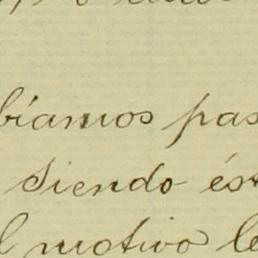 bíamos pas
siendo és
l motivo le